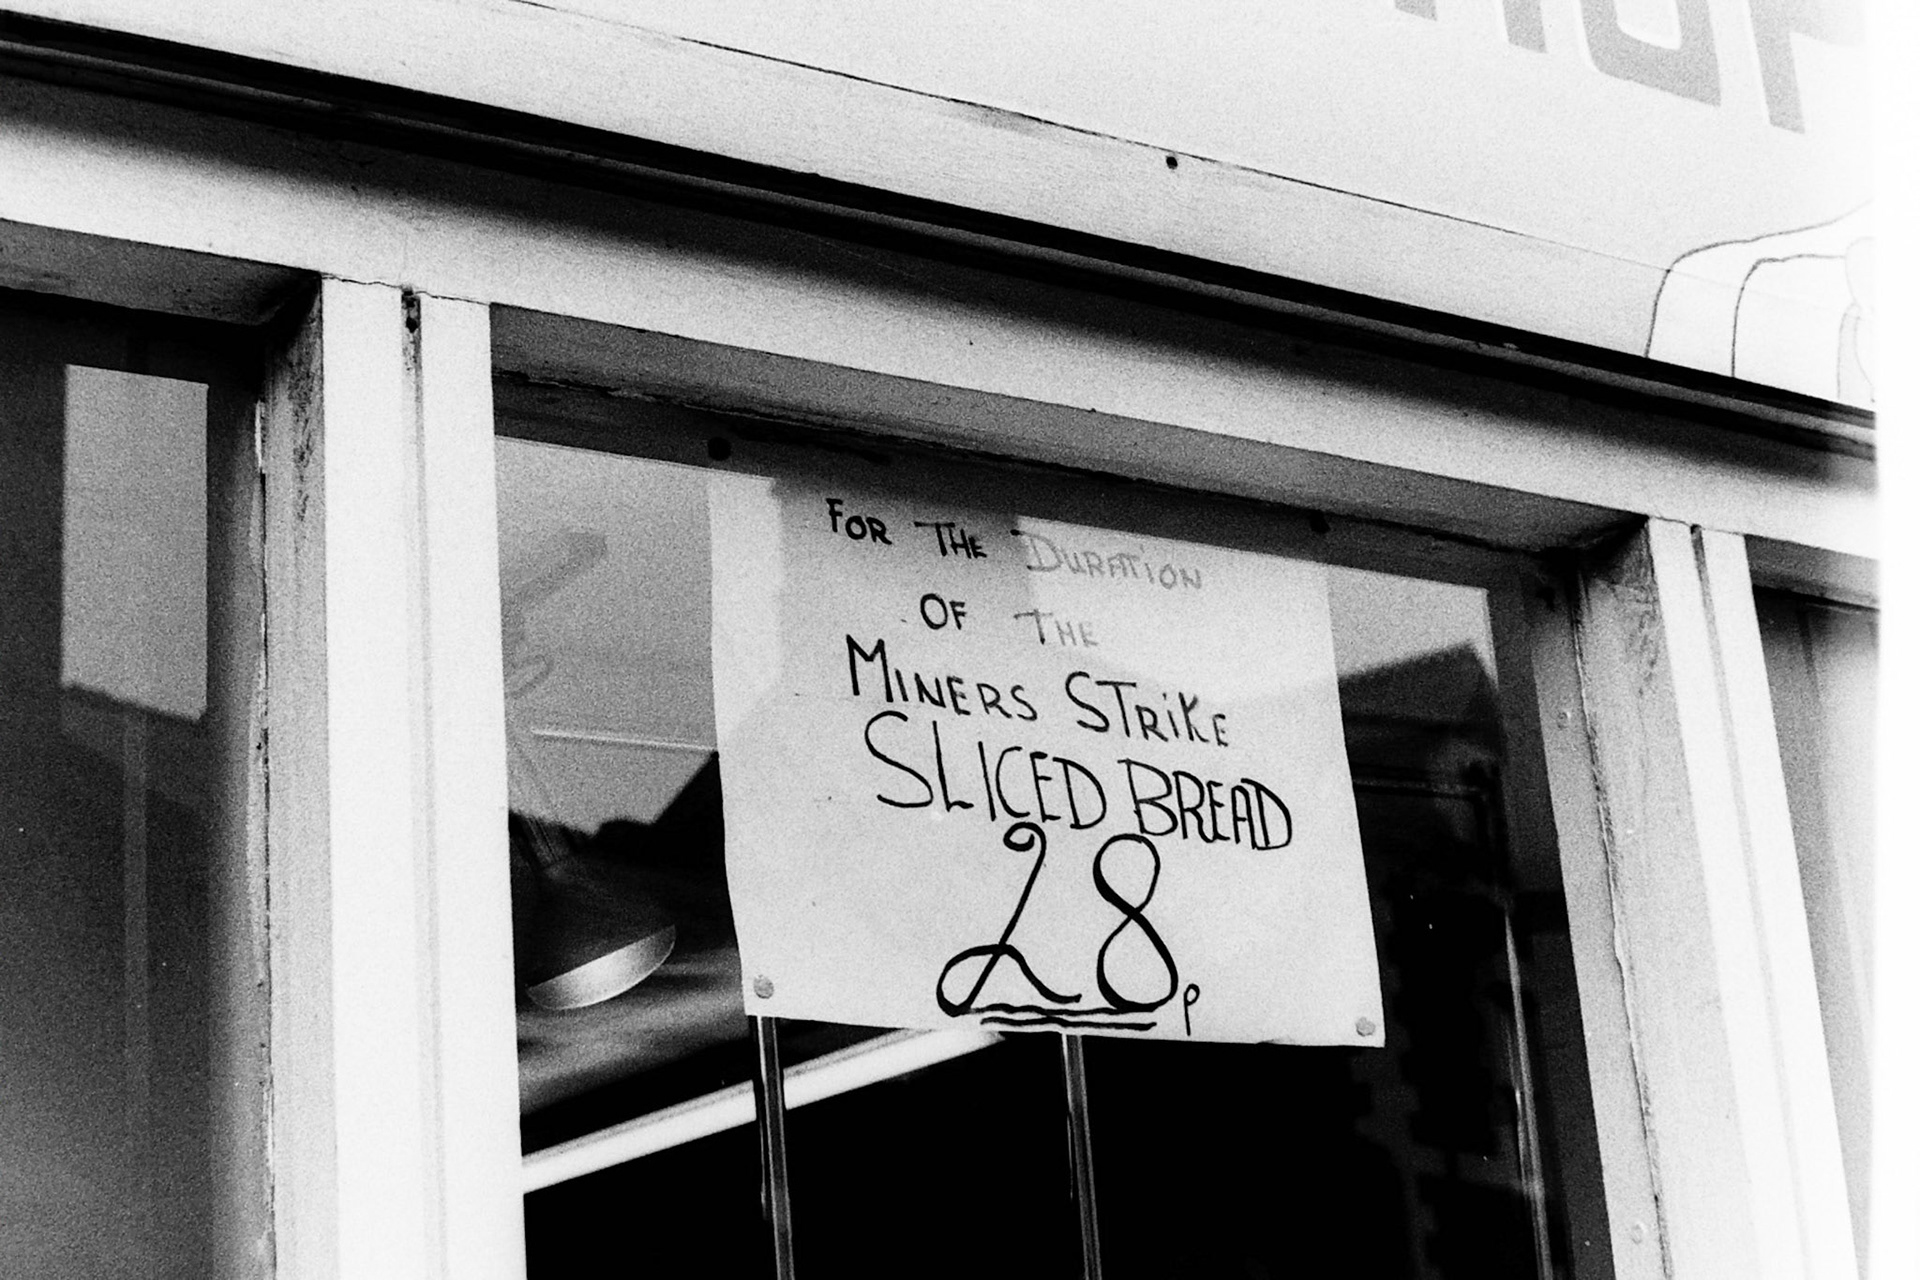 FOR THE DURATION
OF THE
MINERS STRIKE
SLICED BREAD
28p